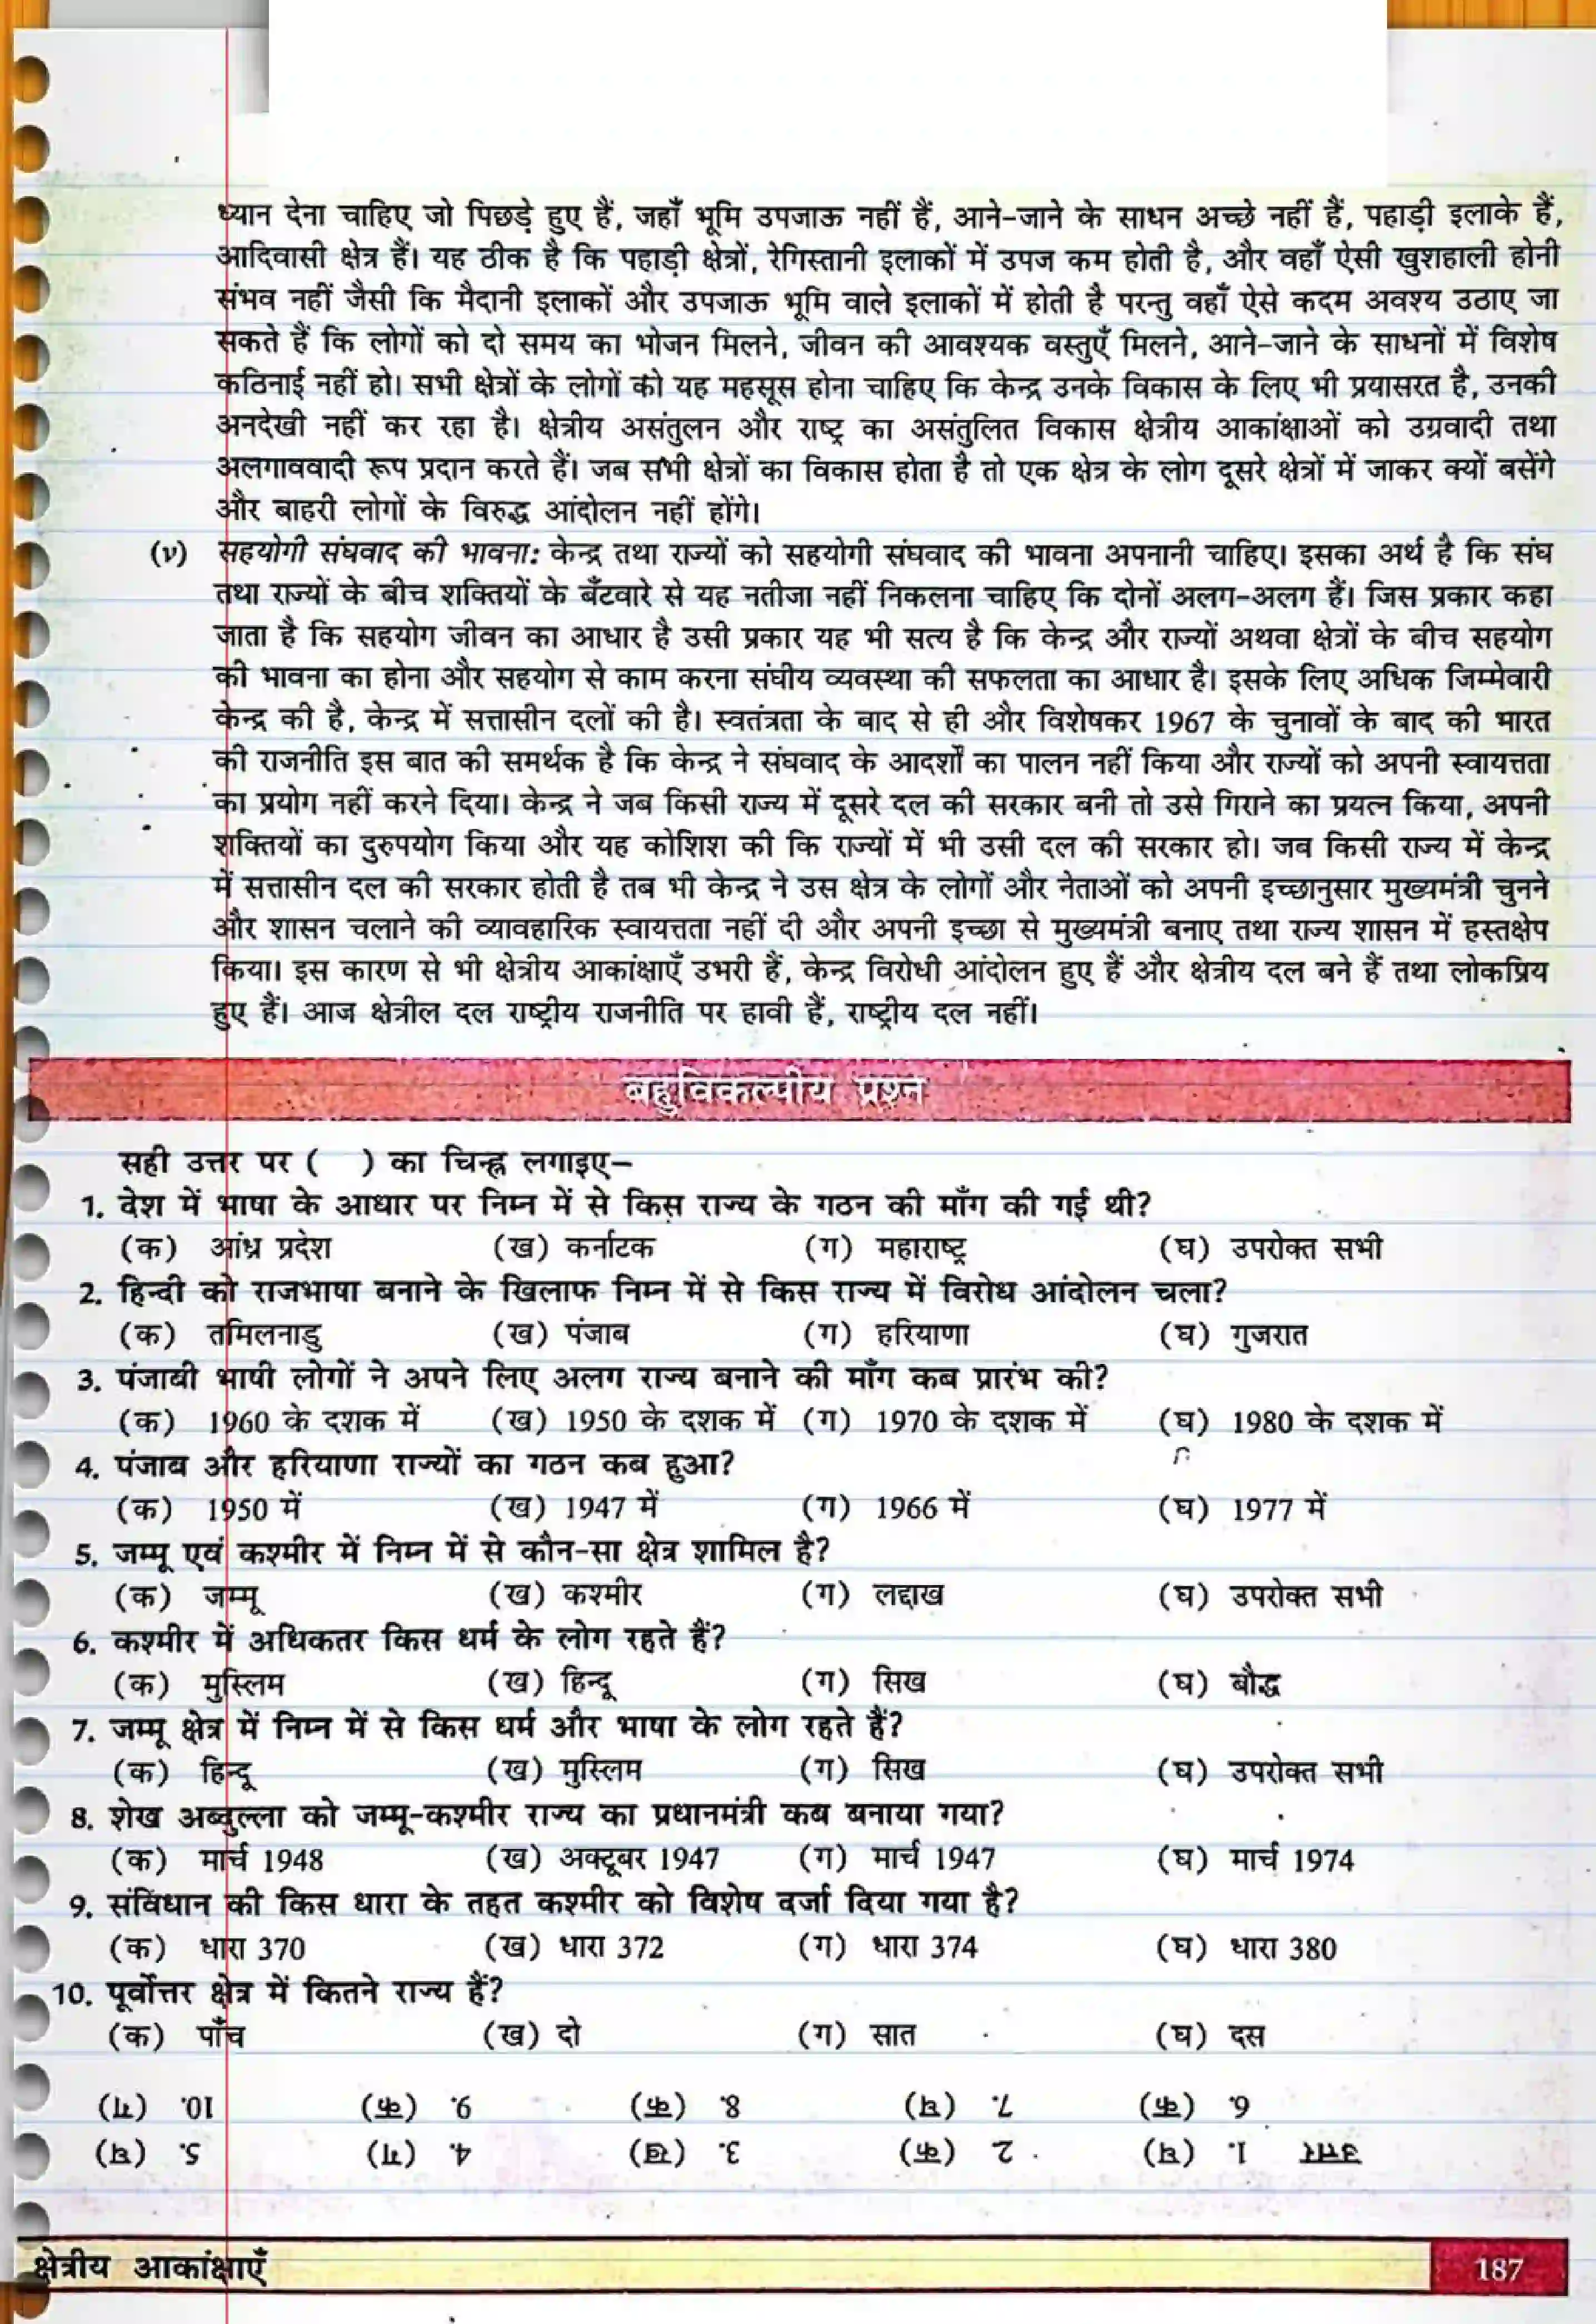 ध्यान देना चाहिए जो पिछड़े हुए हैं, जहाँ भूमि उपजाऊ नहीं हैं, आने-जाने के साधन अच्छे नहीं हैं, पहाड़ी इलाके हैं,
आदिवासी क्षेत्र हैं। यह ठीक है कि पहाड़ी क्षेत्रों, रेगिस्तानी इलाकों में उपज कम होती है, और वहाँ ऐसी खुशहाली होनी
संभव नहीं जैसी कि मैदानी इलाकों और उपजाऊ भूमि वाले इलाकों में होती है परन्तु वहाँ ऐसे कदम अवश्य उठाए जा
सकते हैं कि लोगों को दो समय का भोजन मिलने, जीवन की आवश्यक वस्तुएँ मिलने, आने-जाने के साधनों में विशेष
कठिनाई नहीं हो। सभी क्षेत्रों के लोगों को यह महसूस होना चाहिए कि केन्द्र उनके विकास के लिए भी प्रयासरत है, उनकी
अनदेखी नहीं कर रहा है। क्षेत्रीय असंतुलन और राष्ट्र का असंतुलित विकास क्षेत्रीय आकांक्षाओं को उग्रवादी तथा
अलगाववादी रूप प्रदान करते हैं। जब सभी क्षेत्रों का विकास होता है तो एक क्षेत्र के लोग दूसरे क्षेत्रों में जाकर क्यों बसेंगे
और बाहरी लोगों के विरुद्ध आंदोलन नहीं होंगे।
(v) सहयोगी संघवाद की भावना: केन्द्र तथा राज्यों को सहयोगी संघवाद की भावना अपनानी चाहिए। इसका अर्थ है कि संघ
तथा राज्यों के बीच शक्तियों के बँटवारे से यह नतीजा नहीं निकलना चाहिए कि दोनों अलग-अलग हैं। जिस प्रकार कहा
जाता है कि सहयोग जीवन का आधार है उसी प्रकार यह भी सत्य है कि केन्द्र और राज्यों अथवा क्षेत्रों के बीच सहयोग
की भावना का होना और सहयोग से काम करना संघीय व्यवस्था की सफलता का आधार है। इसके लिए अधिक जिम्मेवारी
केन्द्र की है, केन्द्र में सत्तासीन दलों की है। स्वतंत्रता के बाद से ही और विशेषकर 1967 के चुनावों के बाद की भारत
की राजनीति इस बात की समर्थक है कि केन्द्र ने संघवाद के आदर्शों का पालन नहीं किया और राज्यों को अपनी स्वायत्तता
का प्रयोग नहीं करने दिया। केन्द्र ने जब किसी राज्य में दूसरे दल की सरकार बनी तो उसे गिराने का प्रयत्न किया, अपनी
शक्तियों का दुरुपयोग किया और यह कोशिश की कि राज्यों में भी उसी दल की सरकार हो। जब किसी राज्य में केन्द्र
में सत्तासीन दल की सरकार होती है तब भी केन्द्र ने उस क्षेत्र के लोगों और नेताओं को अपनी इच्छानुसार मुख्यमंत्री चुनने
और शासन चलाने की व्यावहारिक स्वायत्तता नहीं दी और अपनी इच्छा से मुख्यमंत्री बनाए तथा राज्य शासन में हस्तक्षेप
किया। इस कारण से भी क्षेत्रीय आकांक्षाएँ उभरी हैं, केन्द्र विरोधी आंदोलन हुए हैं और क्षेत्रीय दल बने हैं तथा लोकप्रिय
हुए हैं। आज क्षेत्रील दल राष्ट्रीय राजनीति पर हावी हैं, राष्ट्रीय दल नहीं।
बहुविकल्पीय प्रश्न
सही उत्तर पर ( ) का चिन्ह्न लगाइए–
1. देश में भाषा के आधार पर निम्न में से किस राज्य के गठन की माँग की गई थी?
(क) आंध्र प्रदेश (ख) कर्नाटक (ग) महाराष्ट्र (घ) उपरोक्त सभी
2. हिन्दी को राजभाषा बनाने के खिलाफ निम्न में से किस राज्य में विरोध आंदोलन चला?
(क) तमिलनाडु (ख) पंजाब (ग) हरियाणा (घ) गुजरात
3. पंजाबी भाषी लोगों ने अपने लिए अलग राज्य बनाने की माँग कब प्रारंभ की?
(क) 1960 के दशक में (ख) 1950 के दशक में (ग) 1970 के दशक में (घ) 1980 के दशक में
4. पंजाब और हरियाणा राज्यों का गठन कब हुआ?
(क) 1950 में (ख) 1947 में (ग) 1966 में (घ) 1977 में
5. जम्मू एवं कश्मीर में निम्न में से कौन-सा क्षेत्र शामिल है?
(क) जम्मू (ख) कश्मीर (ग) लद्दाख (घ) उपरोक्त सभी
6. कश्मीर में अधिकतर किस धर्म के लोग रहते हैं?
(क) मुस्लिम (ख) हिन्दू (ग) सिख (घ) बौद्ध
7. जम्मू क्षेत्र में निम्न में से किस धर्म और भाषा के लोग रहते हैं?
(क) हिन्दू (ख) मुस्लिम (ग) सिख (घ) उपरोक्त सभी
8. शेख अब्दुल्ला को जम्मू-कश्मीर राज्य का प्रधानमंत्री कब बनाया गया?
(क) मार्च 1948 (ख) अक्टूबर 1947 (ग) मार्च 1947 (घ) मार्च 1974
9. संविधान की किस धारा के तहत कश्मीर को विशेष दर्जा दिया गया है?
(क) धारा 370 (ख) धारा 372 (ग) धारा 374 (घ) धारा 380
10. पूर्वोत्तर क्षेत्र में कितने राज्य हैं?
(क) पाँच (ख) दो (ग) सात (घ) दस
उत्तर 1. (घ) 2. (क) 3. (ख) 4. (ग) 5. (घ)
6. (क) 7. (घ) 8. (क) 9. (क) 10. (ग)
क्षेत्रीय आकांक्षाएँ 187